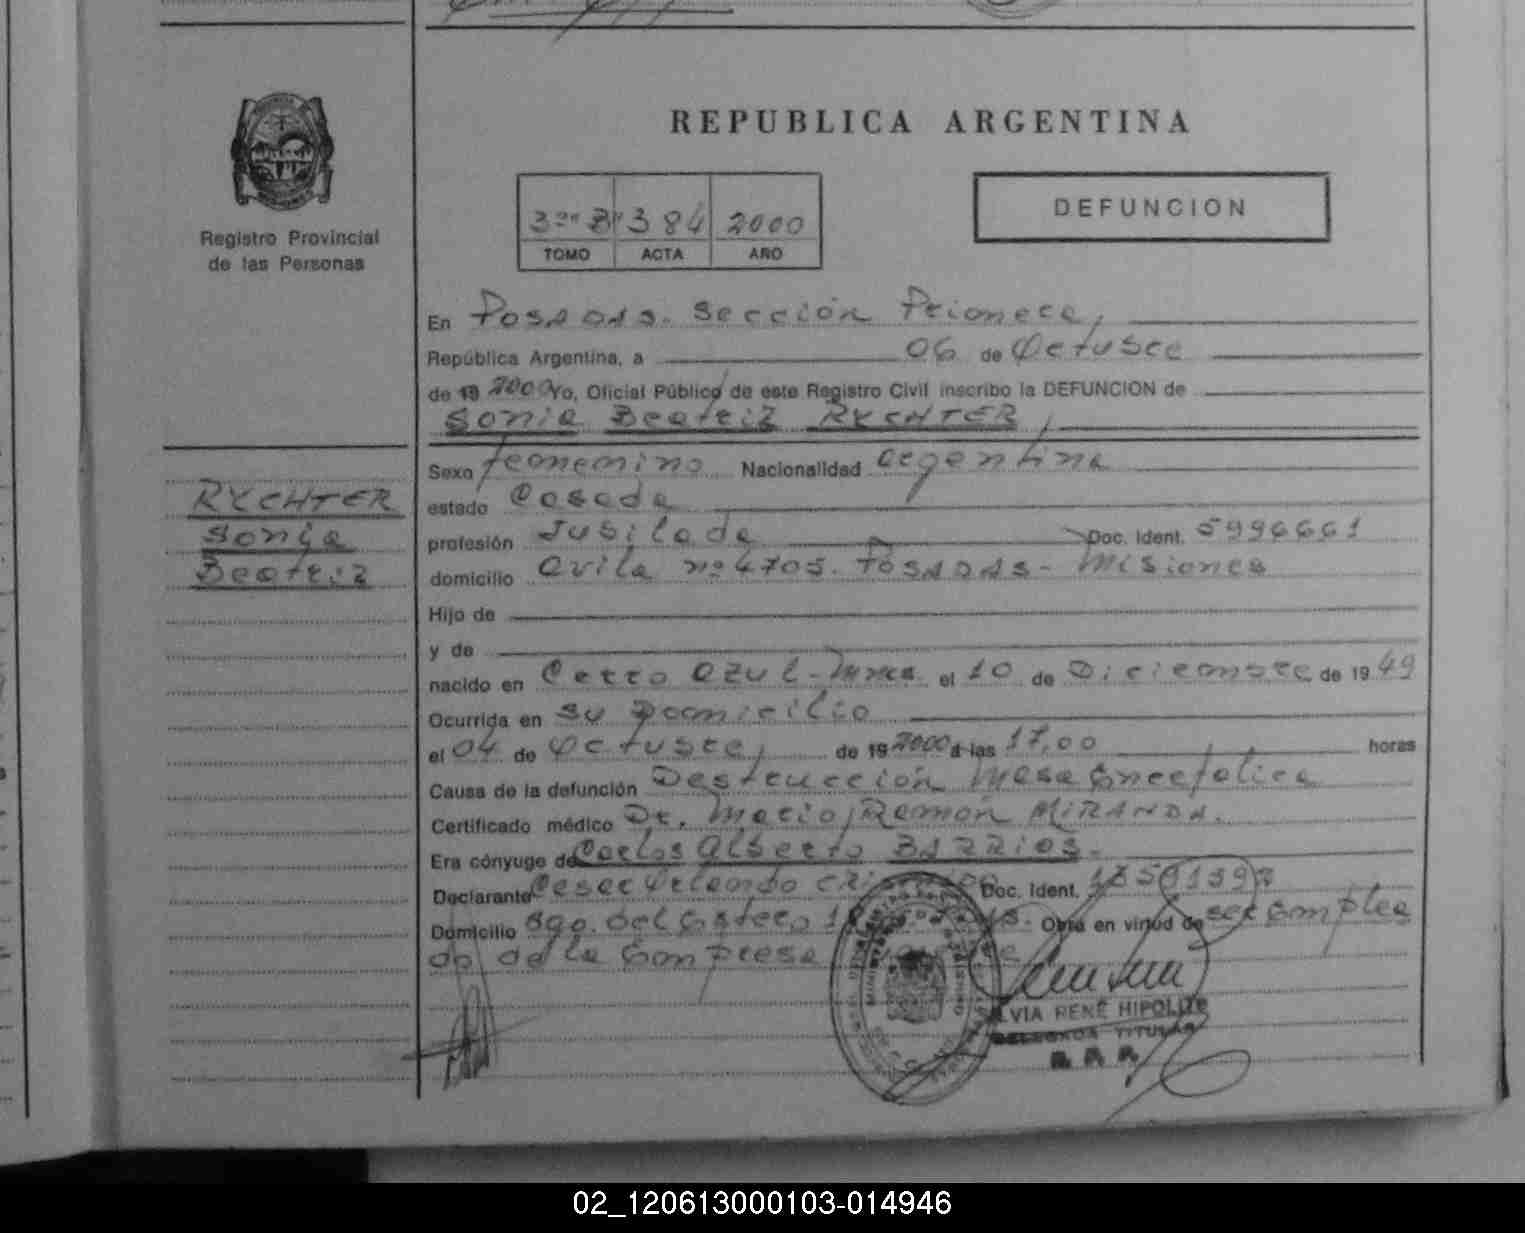 REPUBLICA ARGENTINA
Registro Provincial
de las Personas
3º "B" 384 2000
TOMO ACTA AÑO
DEFUNCION
En Posadas. Sección Primera,
República Argentina, a 06 de Octubre
de 19 2000 Yo, Oficial Público de este Registro Civil inscribo la DEFUNCION de
Sonia Beatriz RYCHTER,
RYCHTER
Sonia
Beatriz
Sexo femenino Nacionalidad argentina
estado Casada
profesión Jubilada Doc. Ident. 5996661
domicilio Avila nº 4705. Posadas - Misiones
Hijo de
y de
nacido en Cerro Azul - el 10 de Diciembre de 19 49
Ocurrida en su Domicilio
el 04 de Octubre, de 19 2000 a las 17,00 horas
Causa de la defunción Destrucción Masa Encefalica
Certificado médico Dr. Mario Ramón MIRANDA.
Era cónyuge de Carlos Alberto BARRIOS.
Declarante Cesar Orlando Doc. Ident.
Domicilio Sgo. del Estero Obra en virtud de ser emplea
do de la Empresa
SILVIA RENÉ HIPOLITO
DELEGADA TITULAR
R. P. P.
02_120613000103-014946